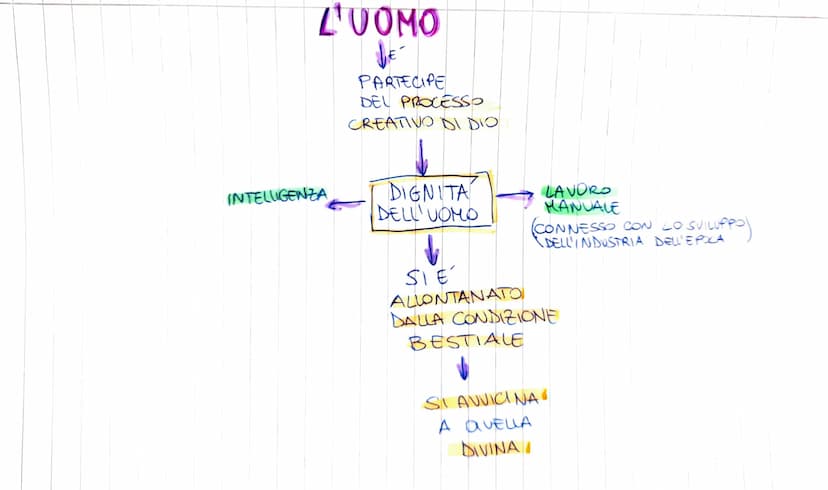 L'UOMO
È
PARTECIPE
DEL PROCESSO
CREATIVO DI DIO
INTELLIGENZA
DIGNITÀ
DELL'UOMO
LAVORO
MANUALE
(CONNESSO CON LO SVILUPPO
DELL'INDUSTRIA DELL'EPOCA)
SI È
ALLONTANATO
DALLA CONDIZIONE
BESTIALE
SI AVVICINA
A QUELLA
DIVINA